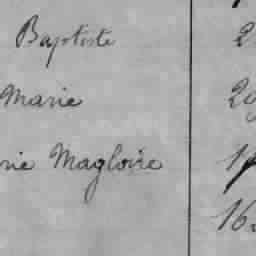 Baptiste 2
Marie 29
rie Magloire 1
16